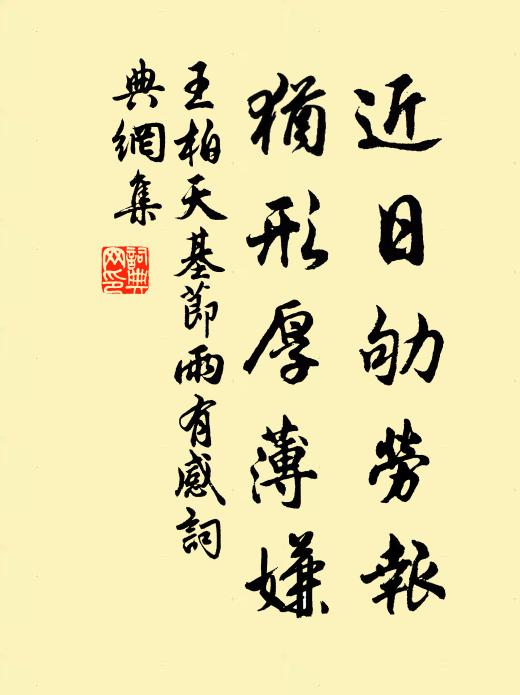 近日劬勞報
猶形厚薄嫌
王柏天基節雨有感詞
典網集
詞典網印